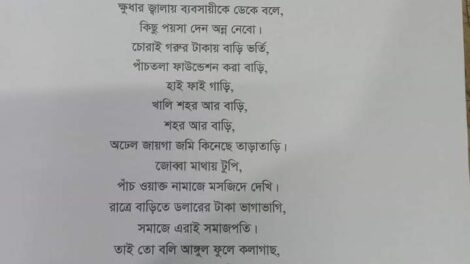 ক্ষুধার জ্বালায় ব্যবসায়ীকে ডেকে বলে,
কিছু পয়সা দেন অন্ন নেবো।
চোরাই গরুর টাকায় বাড়ি ভর্তি,
পাঁচতলা ফাউন্ডেশন করা বাড়ি,
হাই ফাই গাড়ি,
খালি শহর আর বাড়ি,
শহর আর বাড়ি,
অঢেল জায়গা জমি কিনেছে তাড়াতাড়ি।
জোব্বা মাথায় টুপি,
পাঁচ ওয়াক্ত নামাজে মসজিদে দেখি।
রাত্রে বাড়িতে ডলারের টাকা ভাগাভাগি,
সমাজে এরাই সমাজপতি।
তাই তো বলি আঙ্গুল ফুলে কলাগাছ,